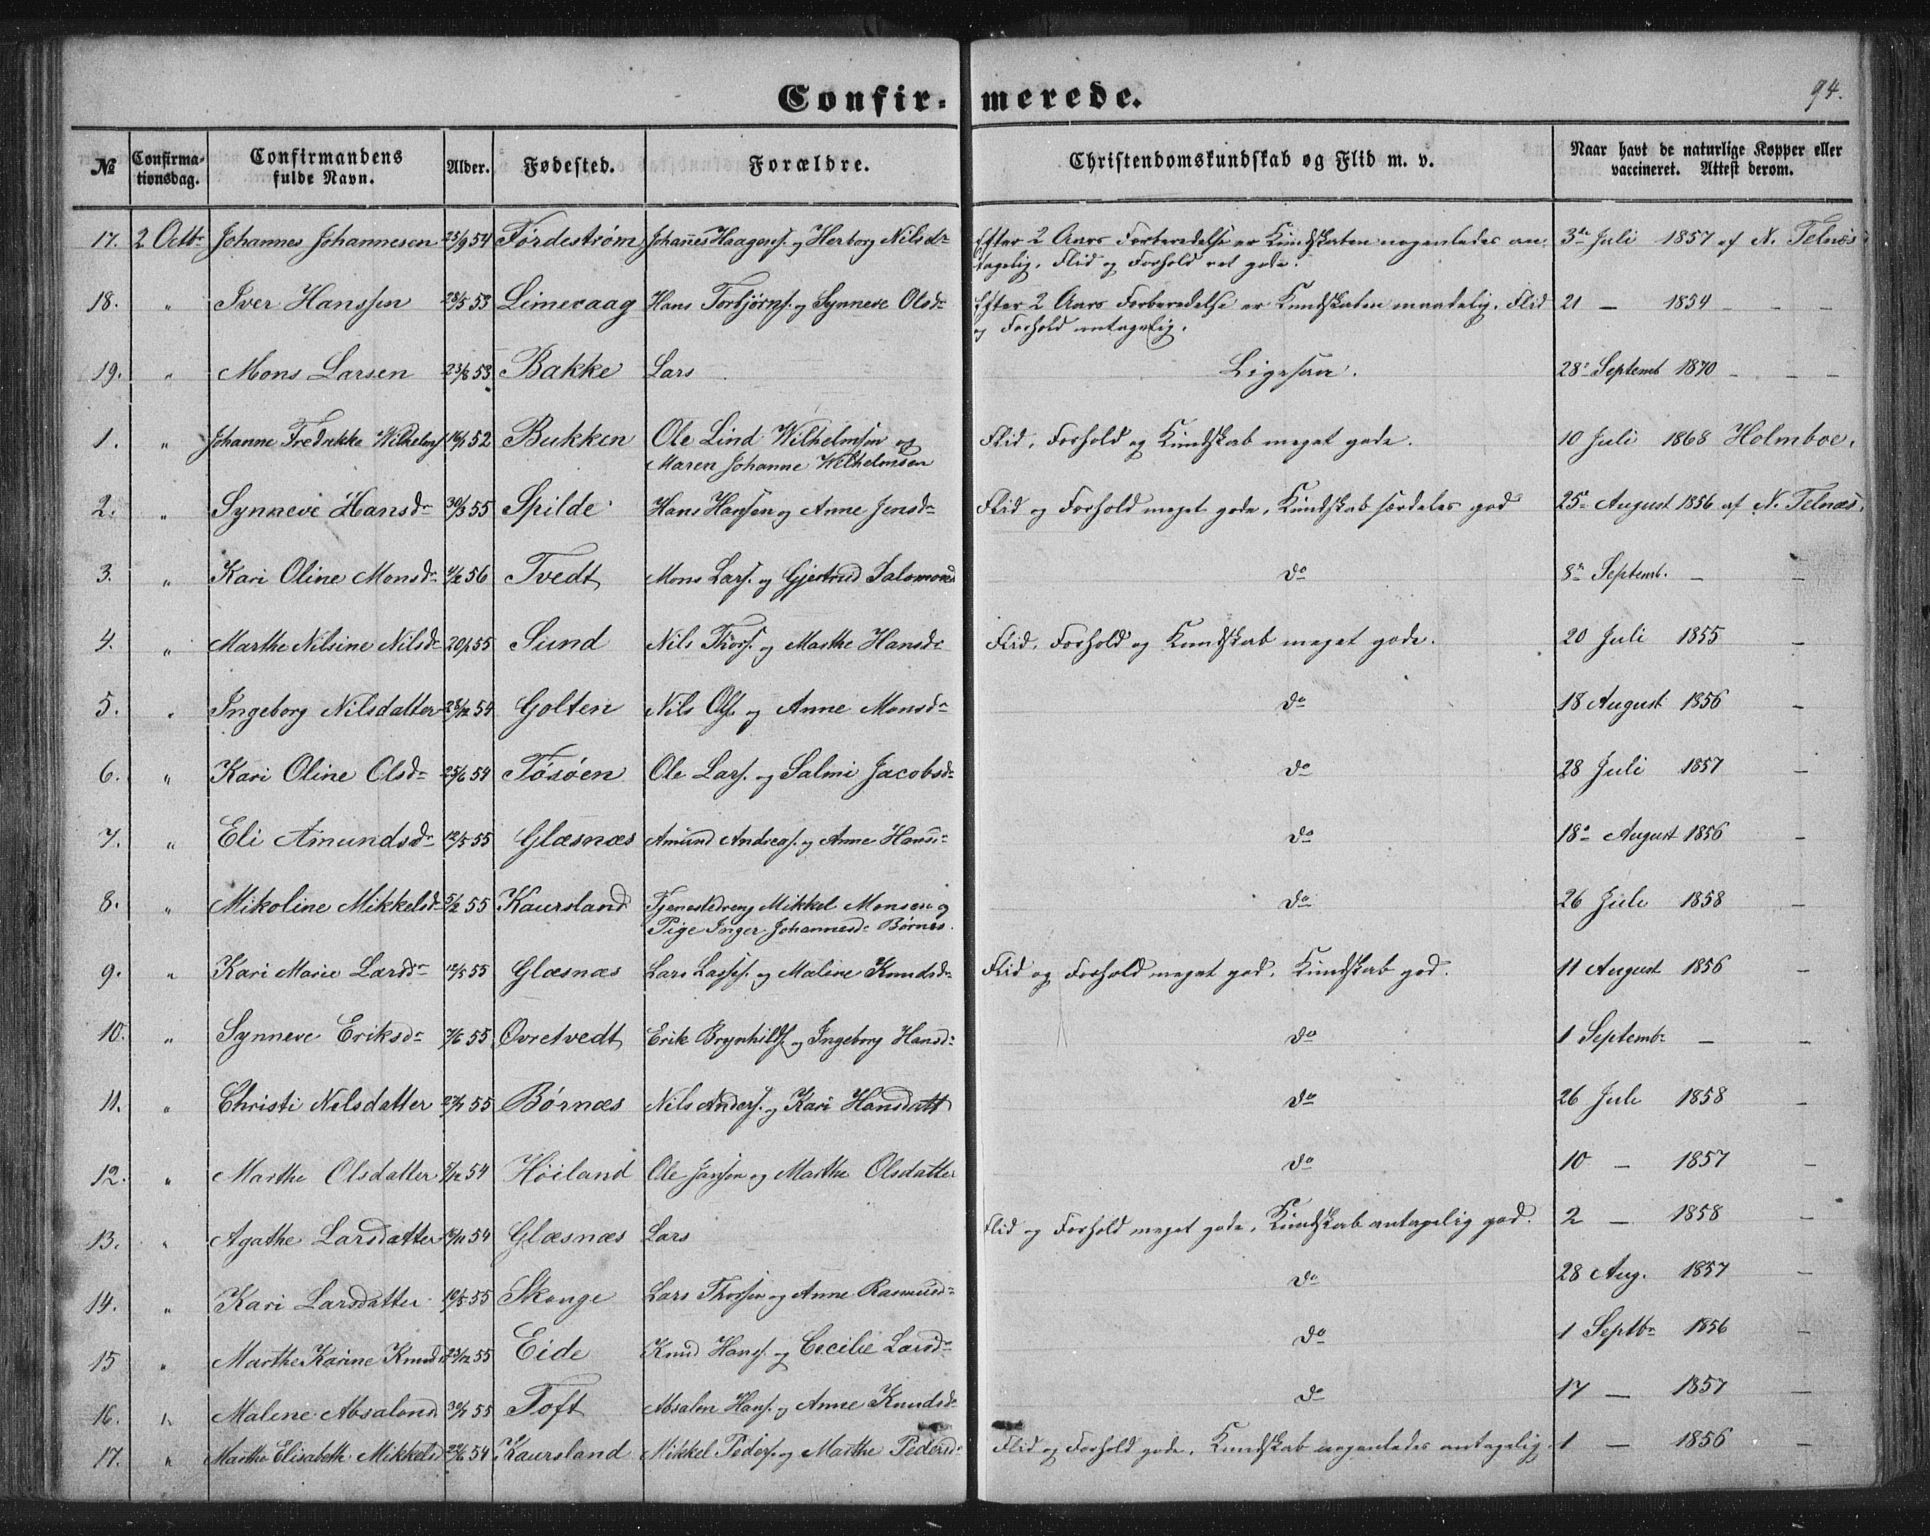 Confir-merede.
94.
№ Confirma-tionsdag. Confirmandens fulde Navn. Alder. Fødested. Forældre. Christendomskundskab og Flid m. v. Naar havt de naturlige Kopper eller vaccineret. Attest derom.
17. 2 Octbr Johannes Johannesen 25/9 54 Førdestrøm Johannes Haagens. og Herborg Nilsdr Efter 2 Aars Forberedelse er Kundskaben nogenledes an-
tagelig. Flid og Forhold ret gode. 3die Juli 1857 af N. Telnæs
18. " Iver Hanssen 28/5 53 Limevaag Hans Torbjørns. og Synneve Olsdr Efter 2 Aars Forberedelse er Kundskaben maadelig. Flid
og Forhold antagelig. 21 — 1854 - - -
19. " Mons Larsen 23/8 53 Bakke Lars Ligesaa. 28 Septemb 1870 - - -
1. " Johanne Fredrikke Wilhelms 16/1 52 Bukken Ole Lind Wilhelmsen og
Maren Johanne Wilhelmsen Flid, Forhold og Kundskab meget gode. 10 Juli 1868 Holmboe.
2. " Synneve Hansdr 30/3 55 Spilde Hans Hansen og Anne Jensdr Flid og Forhold meget gode, Kundskab særdeles god 25 August 1856 af N. Telnæs.
3. " Kari Oline Monsdr 4/2 56 Tvedt Mons Lars. og Gjertrud Salomonsd do 8de Septemb. — —
4. " Marthe Nilsine Nilsdr 20/1 55 Sund Nils Thors. og Marthe Hansdr Flid, Forhold og Kundskab meget gode. 20 Juli 1855 —
5. " Ingeborg Nilsdatter 28/12 54 Golten Nils Ols. og Anne Monsdr do 18 August 1856 —
6. " Kari Oline Olsdr 25/6 54 Tøsøen Ole Lars. og Salmi Jacobsdr do 28 Juli 1857 —
7. " Eli Amundsdr 12/5 55 Glæsnæs Amund Andreas. og Anne Hansdr do 18 August 1856 —
8. " Mikoline Mikkelsdr 5/2 55 Kaursland Tjenestedreng Mikkel Monsen og
Pige Inger Johannesdr Børnes. do 26 Juli 1858 —
9. " Kari Marie Larsdr 12/5 55 Glæsnæs Lars Lasses. og Malene Knudsdr Flid og Forhold meget god. Kundskab god. 11 August 1856 —
10. " Synneve Eriksdr 7/6 55 Ovretvedt Erik Brynhilds. og Ingeborg Hansdr do 1 Septembr — —
11. " Christi Nilsdatter 27/1 55 Børnæs Nils Anders. og Kari Hansdatt do 26 Juli 1858 —
12. " Marthe Olsdatter 7/12 54 Høiland Ole Jansen og Marthe Olsdatter do 10 — 1857 —
13. " Agathe Larsdatter 19/11 54 Glæsnæs Lars Flid og Forhold meget gode, Kundskab antagelig god. 2 — 1858 —
14. " Kari Larsdatter 12/5 55 Skoge Lars Thorsen og Anne Rasmusdr do 28 Aug. 1857 —
15 " Marthe Karine Knudsd 23/12 55 Eide Knud Hans. og Cecilie Larsdr do 1 Septbr 1856 —
16. " Malene Absalonsd 30/7 55 Toft Absalon Hans. og Anne Knudsdr do 17 — 1857 —
17. " Marthe Elisabeth Mikkelsd 22/6 54 Kaursland Mikkel Peders. og Marthe Pedersdr Flid og Forhold gode, Kundskab nogenledes antagelig 1 — 1856 —